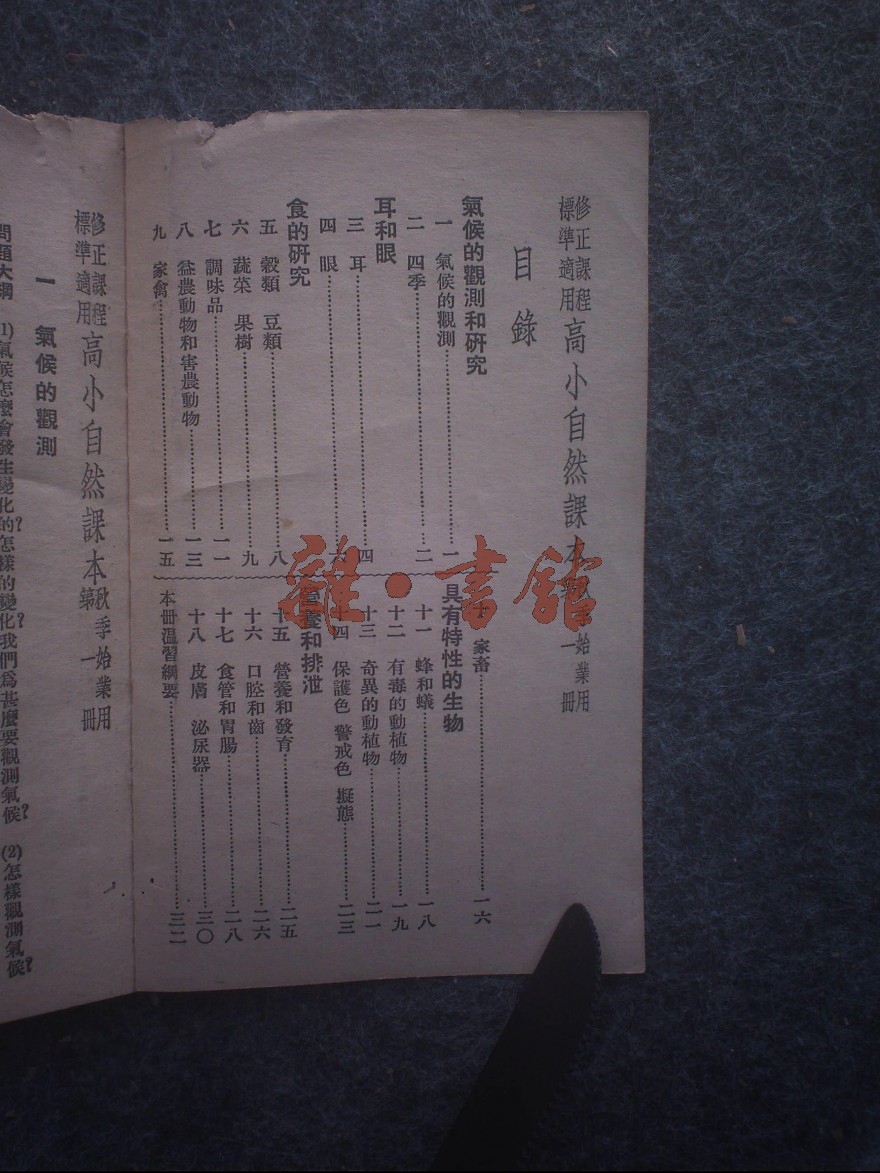 修正課程標準適用 高小自然課本 秋季始業用 第一冊
目錄
氣候的觀測和研究
一 氣候的觀測……一
二 四季……二
耳和眼
三 耳……四
四 眼……六
食的研究
五 穀類 豆類……八
六 蔬菜 果樹……九
七 調味品……一一
八 益農動物和害農動物……一三
九 家禽……一五
十 家畜……一六
具有特性的生物
十一 蜂和蟻……一八
十二 有毒的動植物……一九
十三 奇異的動植物……二一
十四 保護色 警戒色 擬態……二三
營養和排泄
十五 營養和發育……二五
十六 口腔和齒……二六
十七 食管和胃腸……二八
十八 皮膚 泌尿器……三〇
本冊溫習綱要……三二
雜·書館
修正課程標準適用 高小自然課本 秋季始業用 第一冊
一 氣候的觀測
問題大綱 (1)氣候怎麼會發生變化的?怎樣的變化?我們爲甚麼要觀測氣候? (2)怎樣觀測氣候?